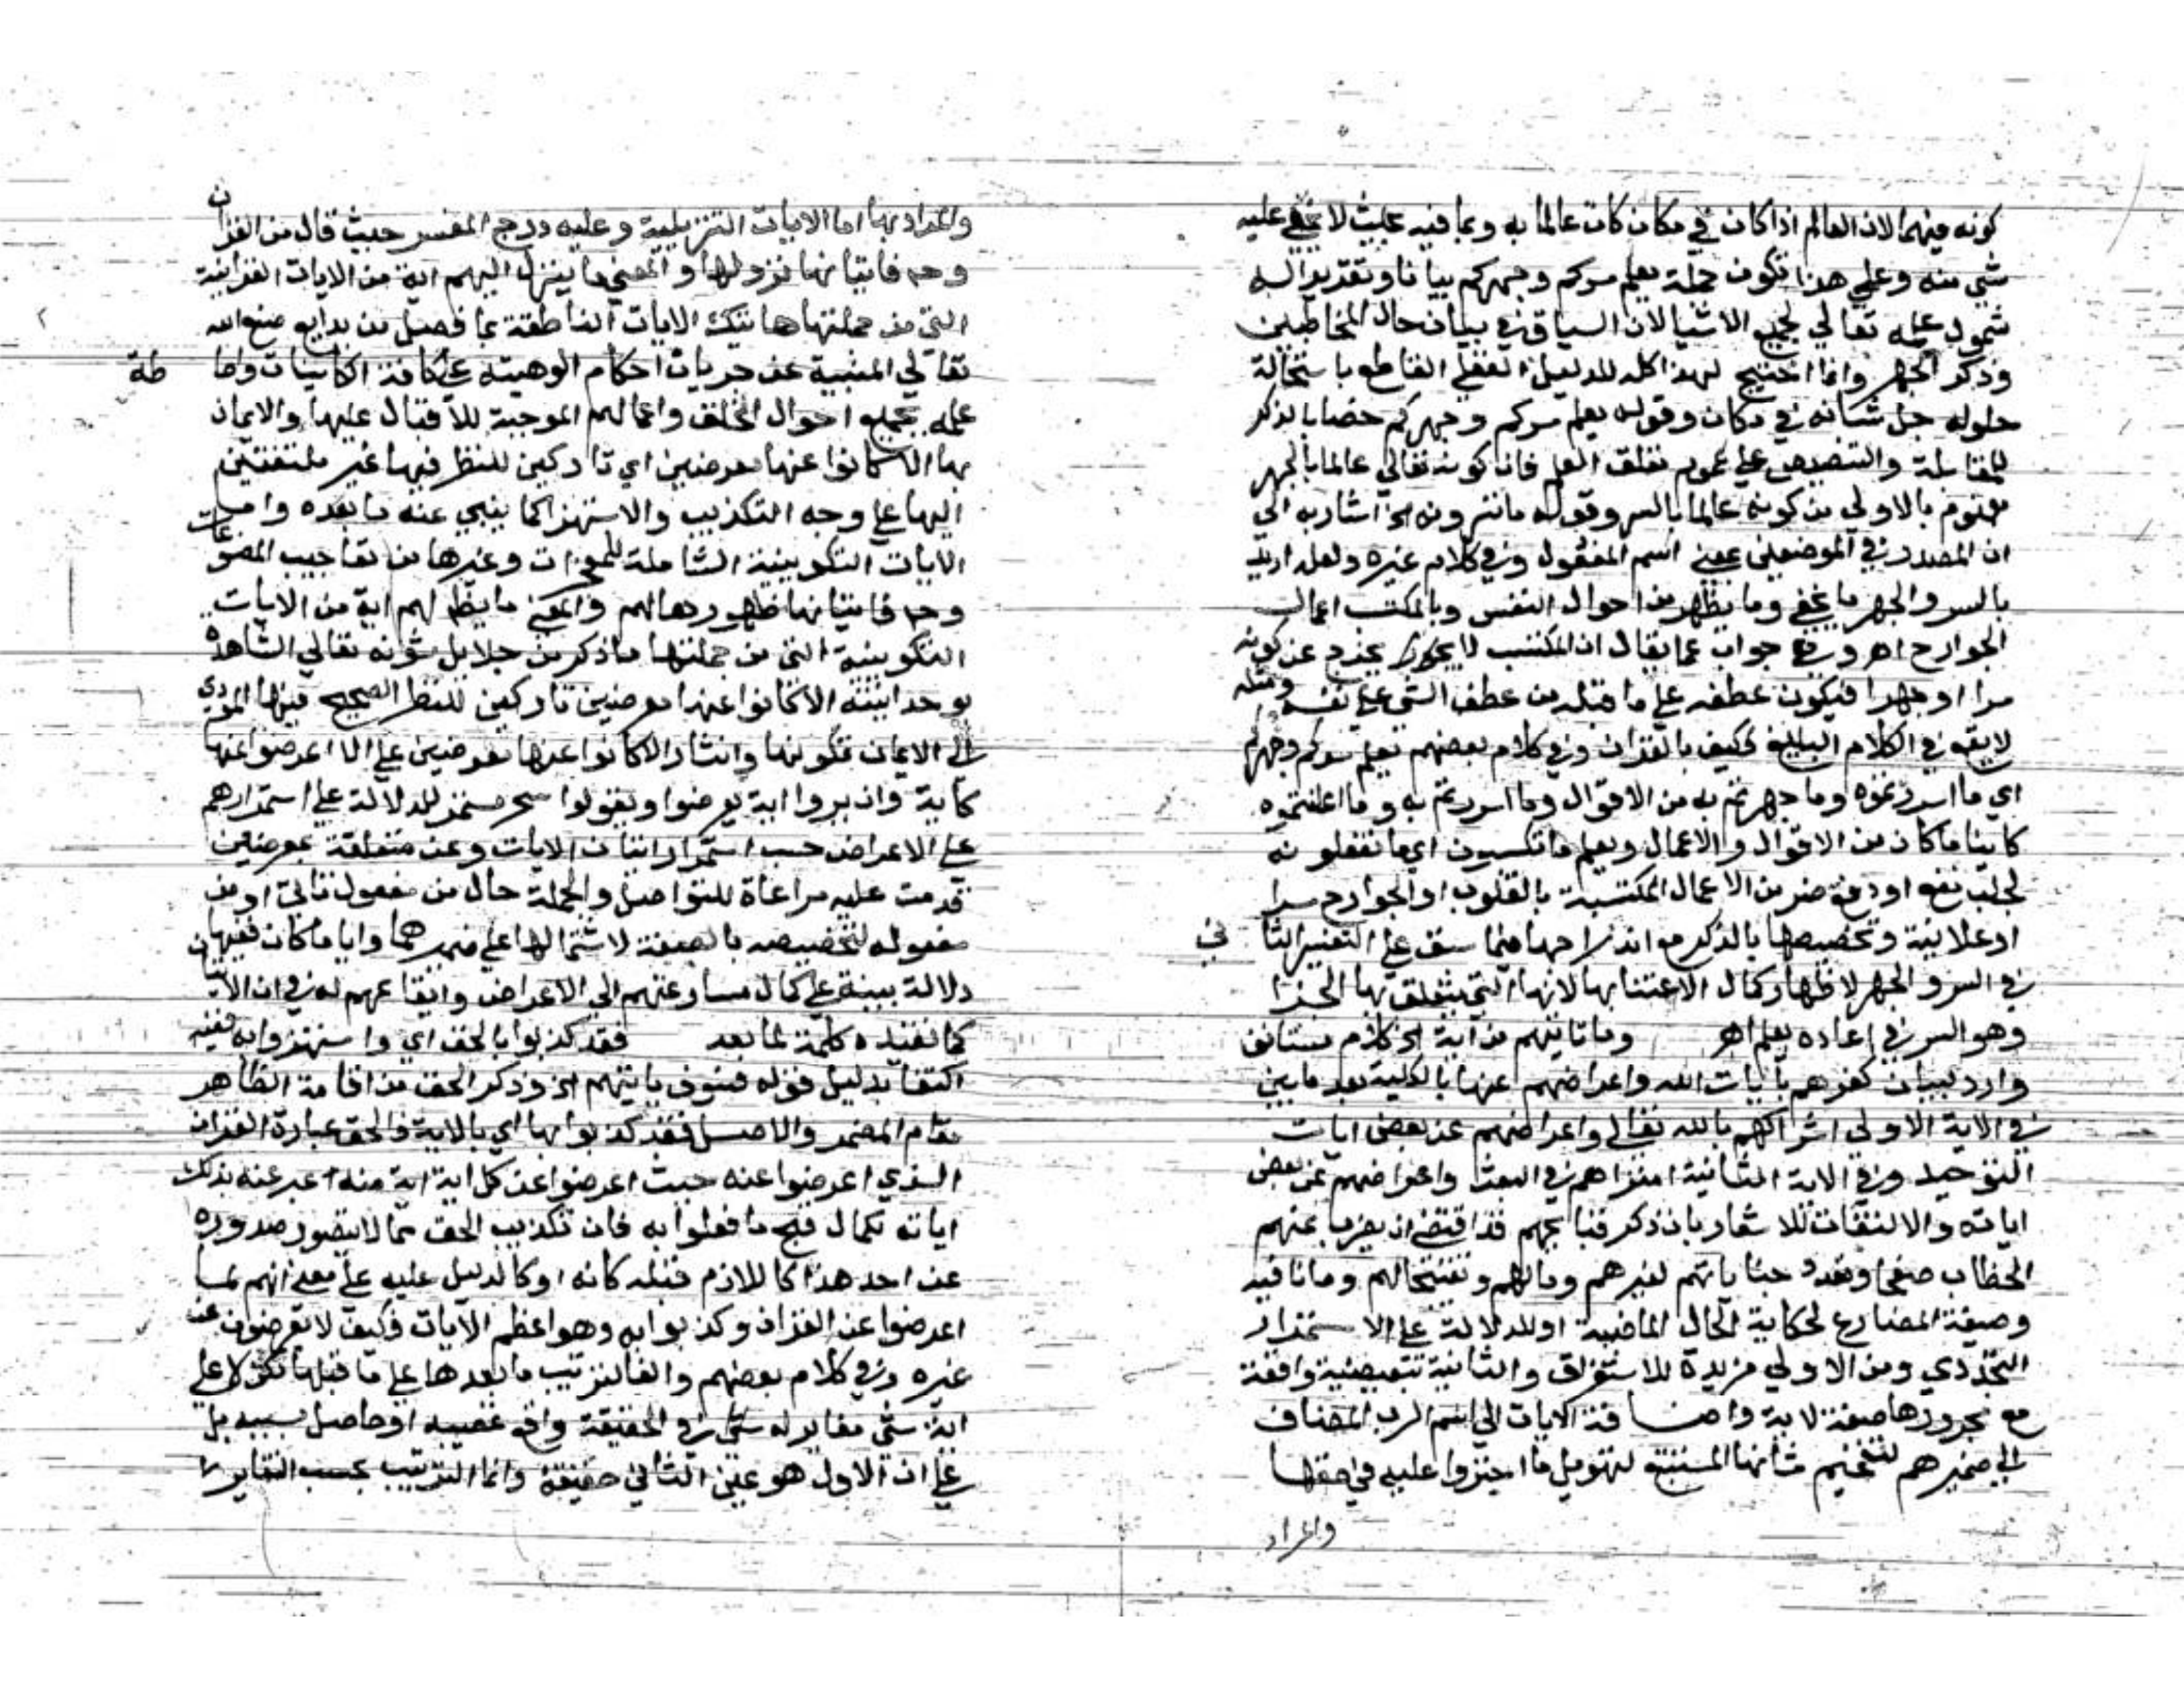 كونه فيهما لان العالم اذا كان في مكان كان عالما به وبما فيه بحيث لا يخفي عليه
شي منه وعلي هذا تكون جملة يعلم سركم وجهركم بيانا وتقديرا له
شمول علمه تعالي لجميع الاشيا لان السياق في بيان حال المخاطبين
وذكر الجهر وانما احتيج لهذا كله للدليل العقلي القاطع باستحالة
حلوله جل شانه في مكان وقوله يعلم سركم وجهركم خصا بالذكر
للمقابلة والتنصيص علي عموم تعلق العلم فان كونه تعالي عالما بالجهر
معلوم بالاولي من كونه عالما بالسر وقوله ما تسرون الخ اشار به الي
ان المصدر في الموضعين بمعني اسم المفعول وفي كلام غيره ولعله اريد
بالسر والجهر ما يخفي وما يظهر من احوال النفس وبالمكتسب اعمال
الجوارح اهـ وفي جواب عما يقال ان المكتسب لا يخرج عن كونه
سرا او جهرا فيكون عطفه علي ما قبله من عطف الشي علي نفسه ومثله
لا يقع في الكلام البليغ فكيف بالقران وفي كلام بعضهم يعلم سركم وجهركم
اي ما اسررتموه وما جهرتم به من الاقوال وما اسررتم به وما اعلنتموه
كاينا ما كان من الاقوال والاعمال ويعلم ما تكسبون اي ما تفعلونه
لجلب نفع او دفع ضر من الاعمال المكتسبة بالقلوب او الجوارح سرا
او علانية وتخصيصها بالذكر مع اندراجها فيما سبق علي التفسير الثاني
في السر والجهر لاظهار كمال الاعتنا بها لانها التي يتعلق بها الجزا
وهو السر في اعادة يعلم اهـ وما تاتيهم من اية الخ كلام مستانف
وارد لبيان كفرهم بايات الله واعراضهم عنها بالكلية بعد ما بين
في الاية الاولي اشراكهم بالله تعالي واعراضهم عن بعض ايات
التوحيد وفي الاية الثانية امتراهم في البعث واعراضهم عن بعض
اياته والالتفات للاشعار بان ذكر قبايحهم قد اقتضي ان يضرب عنهم
الخطاب صفحا وتعدد جناياتهم لغيرهم وما لهم وتقبيحا لهم وما نافية
وصيغة المضارع لحكاية الحال الماضية او للدلالة علي الاستمرار
التجددي ومن الاولي مزيدة للاستغراق والثانية تبعيضية واقعة
مع مجرورها صفة لاية واضافة الايات الي اسم الرب المضاف
الي ضميرهم لتفخيم شانها المستتبع لتهويل ما اجتروا عليه في حقها
والمراد
والمراد بها اما الايات التنزيلية وعليه درج المفسر حيث قال من القران
وحـ فاتيانها نزولها والمعني ما ينزل اليهم اية من الايات القرانية
التي من جملتها هاتيك الايات الناطقة بما فصل من بدايع صنع الله
تعالي المنبية عن جريان احكام الوهيته علي كافة الكاينات واحاطة
علمه بجميع احوال الخلق واعمالهم الموجبة للاقبال عليها والايمان
بها الا كانوا عنها معرضين اي تاركين للنظر فيها غير ملتفتين
اليها علي وجه التكذيب والاستهزا كما ينبي عنه ما بعده واما
الايات التكوينية الشاملة للمعجزات وغيرها من تعاجيب المصنوعات
وحـ فاتيانها ظهورها لهم والمعني ما يظهر لهم اية من الايات
التكوينية التي من جملتها ما ذكر من جلايل شونه تعالي الشاهدة
بوحدانيته الا كانوا عنها معرضين تاركين للنظر الصحيح فيها المودي
الي الايمان بمكونها وايثار الا كانوا عنها معرضين علي الا اعرضوا عنها
كاية وان يروا اية يعرضوا ويقولوا سحر مستمر للدلالة علي استمرارهم
علي الاعراض حسب استمرار اتيان الايات وعن متعلقة بمعرضين
قدمت عليه مراعاة للفواصل والجملة حال من مفعول تاتي او من
مفعوله لتخصيصه بالصفة لاشتمالها علي ضميرهما وايا ما كان ففيها
دلالة بينة علي كمال مسارعتهم الي الاعراض وايقاعهم له في ان الاتيان
كما تفيده كلمة لما بعد فقد كذبوا بالحق اي واستهزوا به ففيه
اكتفا بدليل قوله فسوف ياتيهم الخ وذكر الحق من اقامة الظاهر
مقام المضمر والاصل فقد كذبوا بها اي بالاية والحق عبارة القران
الذي اعرضوا عنه حيث اعرضوا عن كل اية اية منه اعبر عنه بذلك
اياته لكمال قبح ما فعلوا به فان تكذيب الحق مما لا يتصور صدوره
عن احد هذا كاللازم قبله كانه او كالدليل عليه علي معني انهم لما
اعرضوا عن القران وكذبوا به وهو اعظم الايات فكيف لا يعرضون عن
غيره وفي كلام بعضهم والفا لترتيب ما بعدها علي ما قبلها لكن لا علي
انه شي مغاير له شي في الحقيقة واقع عقيبه او حاصل بسببه بل
علي ان الاول هو عين الثاني حقيقة وانما الترتيب بحسب التغاير